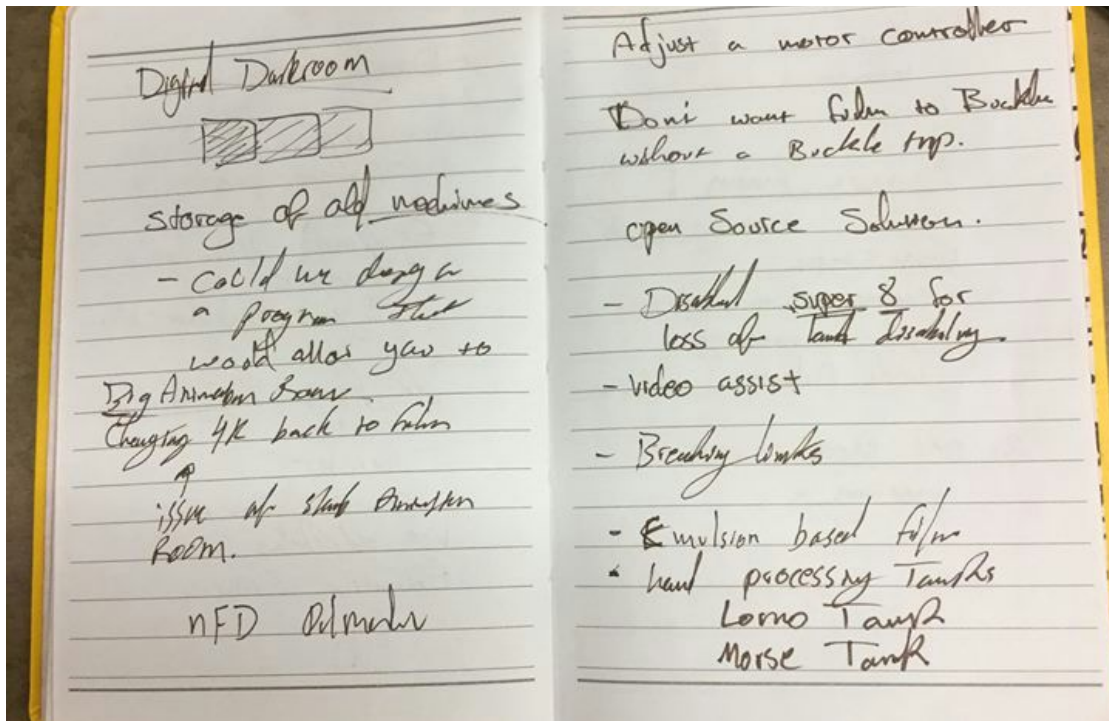 Digital Darkroom
storage of old machines
- Could we
a program that
would allow you to
Big Animation
Changing 4K back to film
issue of Animation
Room.
NFD
Adjust a motor controller
Don't want film to Buckle
without a Buckle trip.
open Source Solution.
- Disabled super 8 for
loss of Tank disabling.
- Video assist
- Breaking limits
- Emulsion based film
- hand processing Tanks
Lomo Tank
Morse Tank